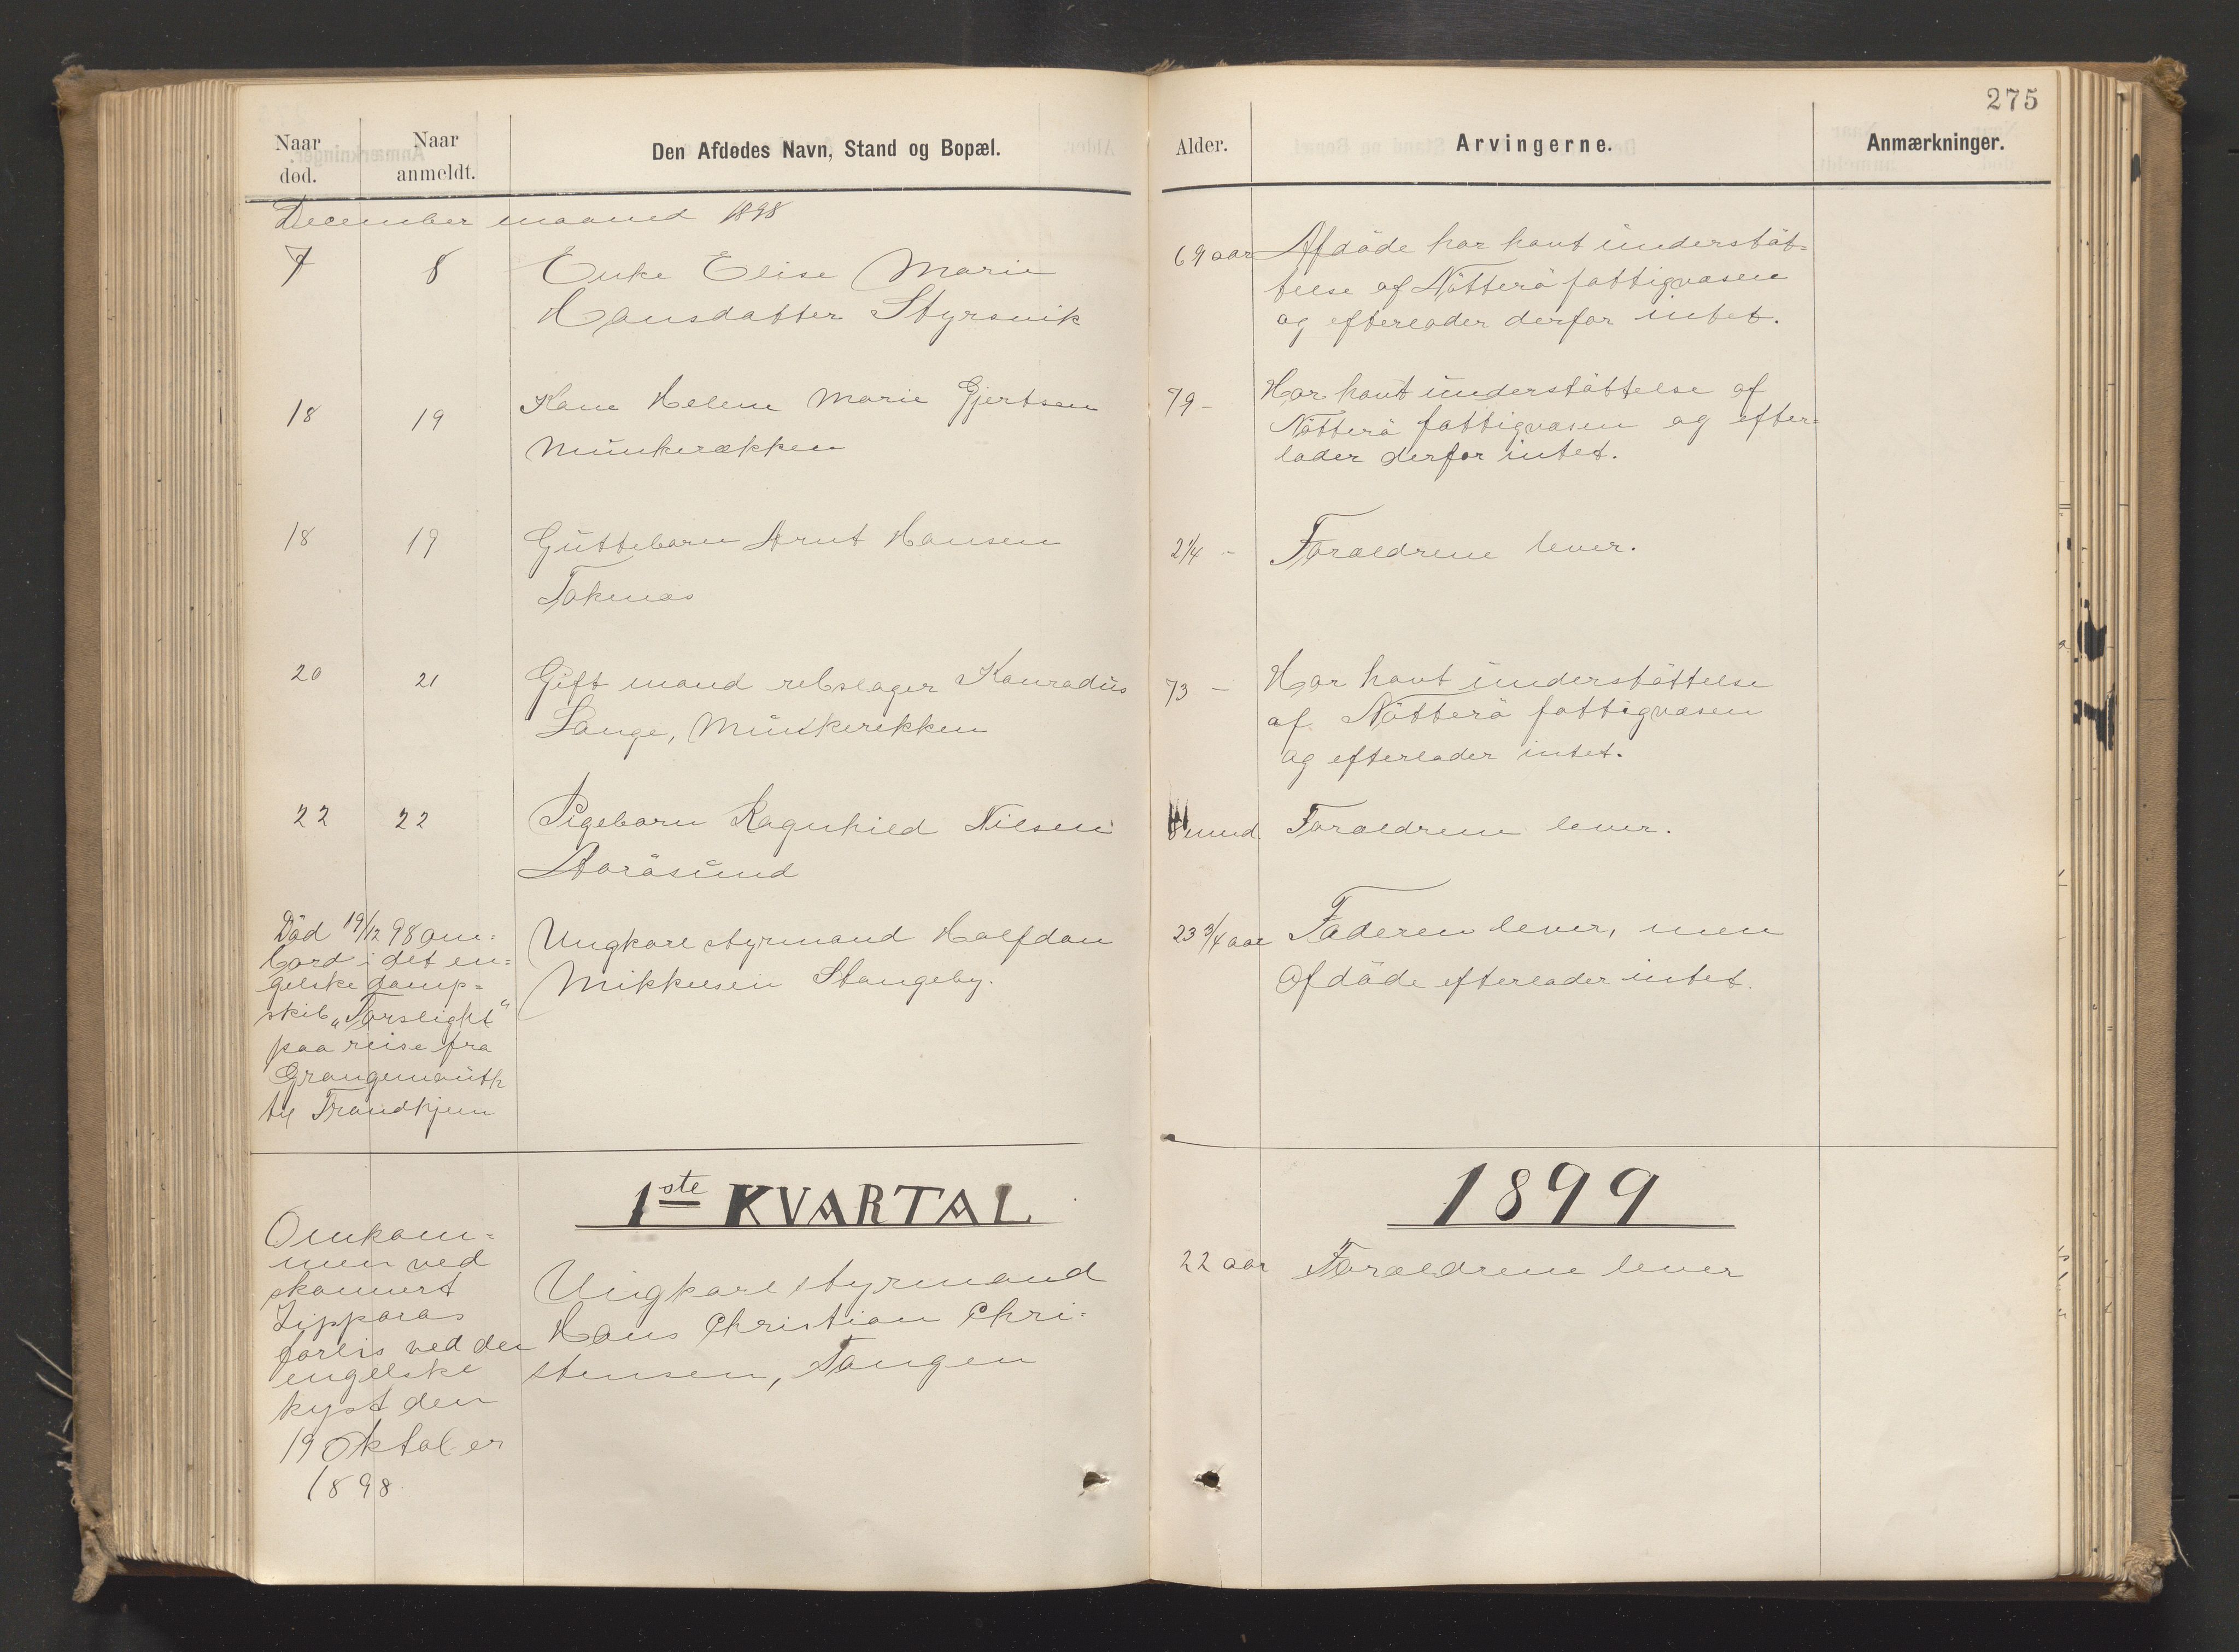 275
Naar død. Naar anmeldt. Den Afdødes Navn, Stand og Bopæl. Alder. Arvingerne. Anmærkninger.
December maaned 1898
7 8 Enke Elise Marie
Hansdatter Styrsvik
69 aar Afdöde har havt understöt=
telse af Nötterö fattigvæsen
og efterlader derfor intet.
18 19 Kone Helene Marie Gjertsen
Munkerækken
79 - Har havt understöttelse af
Nötterö fattigvæsen og efter=
lader derfor intet.
18 19 Guttebarn Arnt Hansen
Tokenæs
2 1/4 - Forældrene lever.
20 21 Gift mand rebslager Konradus
Lange, Munkerekken
73 - Har havt understöttelse
af Nötterö fattigvæsen
og efterlader intet.
22 22 Pigebarn Ragnhild Nilsen
Aarösund
mnd Forældrene lever.
Död 19/12 98 om=
bord i det en=
gelske damp=
skib „Torslight"
paa reise fra
Grangemouth
til Trondhjem
Ungkarl styrmand Halfdan
Mikkelsen Stangeby.
23 3/4 aar Faderen lever, men
Afdöde efterlader intet.
1ste KVARTAL 1899
Omkom=
men ved
skonnert
Zipporas
forlis ved den
engelske
kyst den
19 Oktober
1898
Ungkarl styrmand
Hans Christian Chri=
stensen, Tangen
22 aar Forældrene lever